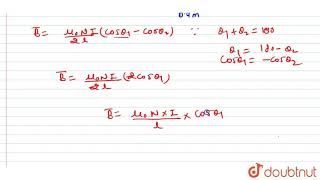 0.4m
B̄ = μ₀NI/2l (cosθ₁ - cosθ₂) ∵ θ₁ + θ₂ = 180
θ₁ = 180 - θ₂
cosθ₁ = -cosθ₂
B̄ = μ₀NI/2l (2cosθ₁)
B̄ = μ₀N×I/l × cosθ₁
doubtnut